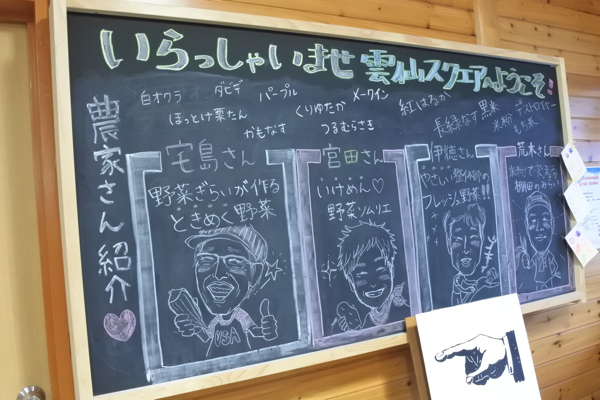 いらっしゃいませ 雲仙スクエアへようこそ!
農家さん紹介
白オクラ ダビデ パープル メークイン 紅はるか 黒米
ほっとけ栗たん くりゆたか 長緑なす 米粉
かもなす つるむらさき もち米
宅島さん
野菜ぎらいが作る
ときめく野菜
USA
宮田さん
いけめん♡
野菜ソムリエ
伊穂さん
やさしい整体師の
フレッシュ野菜!!
荒木さん
棚田の